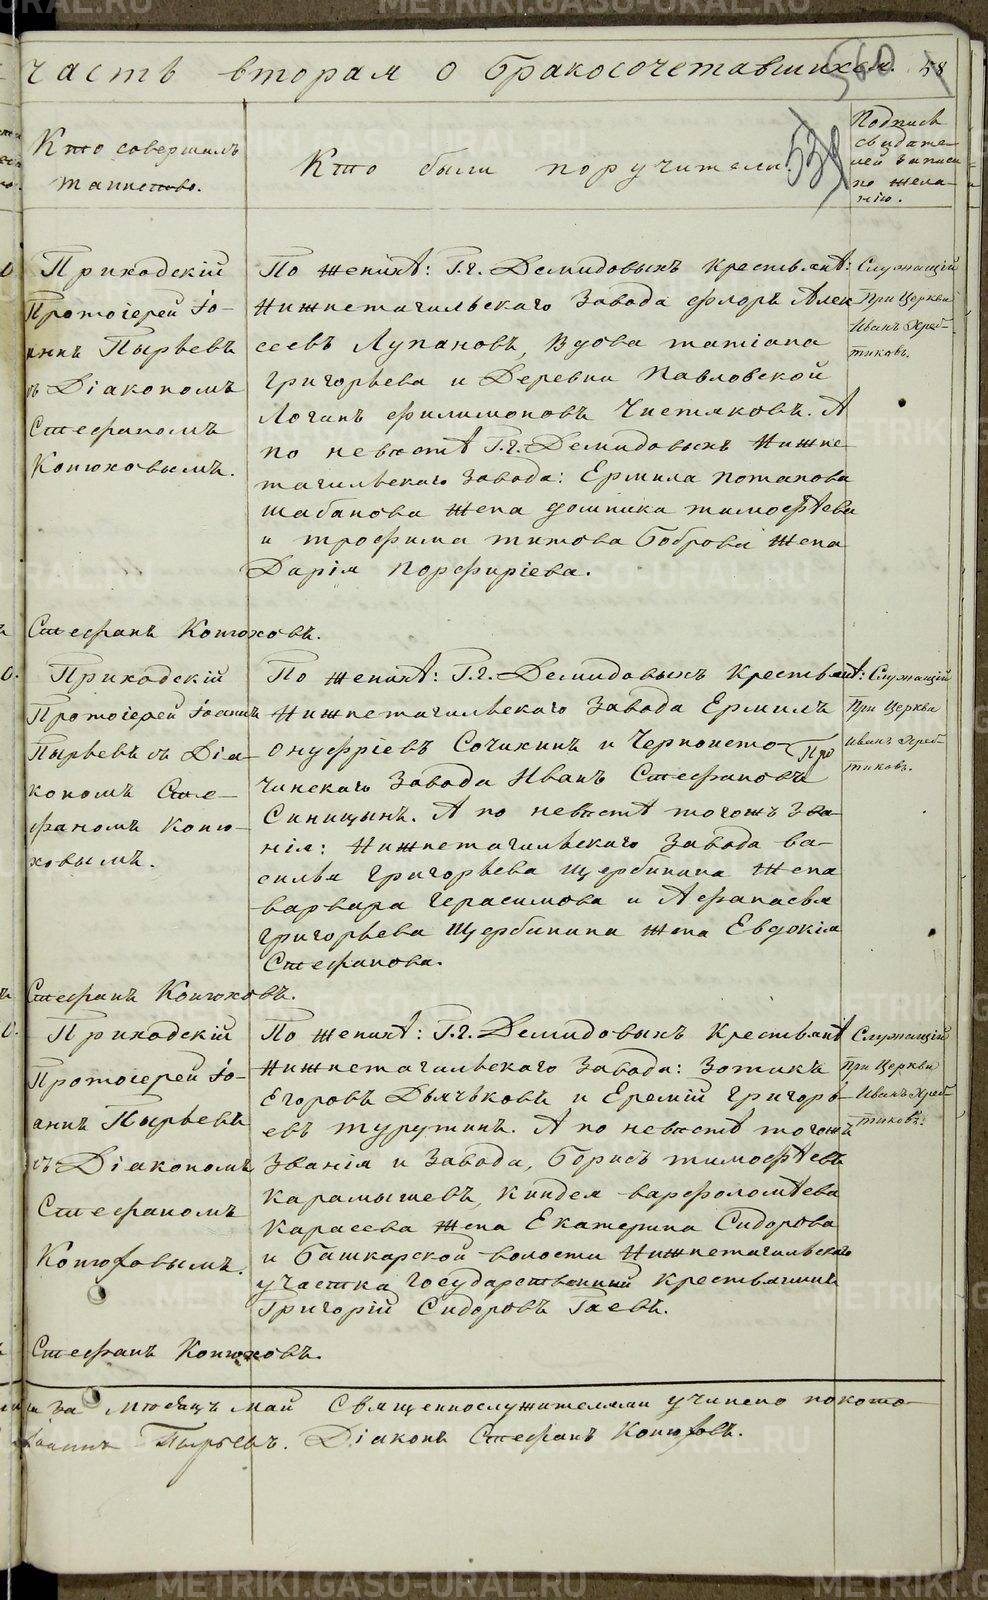 METRIKI.GASO-URAL.RU
часть вторая о бракосочетавшихся.
560
58
Кто совершилъ
таинство.
Кто были поручители.
539
Подпись
свидѣте-
лей записи
по жела-
нію.
Приходскій
Протоіерей Іо-
аннъ Пырьевъ
съ Діакономъ
Стефаномъ
Конюховымъ.
По женихѣ: Г.г. Демидовыхъ Крестьянѣ:
Нижнетагильскаго Завода Флоръ Алек
сеевъ Лупановъ, Вдова татіана
григорьева и Деревни Павловской
Логинъ филимоновъ Чистяковъ. А
по невѣстѣ Г.г. Демидовыхъ Нижне
тагильскаго завода: Ермила потапова
шабанова жена домника тимофѣева
и трофима титова Боброва жена
Дарія Порфиріева.
Служащій
При Церкви
Иванъ Хреб-
тиковъ.
Стефанъ Конюховъ.
Приходскій
Протоіерей Іоаннъ
Пырьевъ съ Діа-
кономъ Сте-
фаномъ Коню-
ховымъ.
По женихѣ: Г.г. Демидовыхъ Крестьянѣ:
Нижнетагильскаго Завода Ермилъ
онуфріевъ Сочихинъ и Черноисто-
чинскаго Завода Иванъ Стефановъ
Синицынъ. А по невѣстѣ тогожъ Зва-
нія: Нижнетагильскаго Завода ва-
силья григорьева щербинина жена
варвара герасимова и Афанасья
григорьева щербинина жена Евдокія
Стефанова.
Служащій
При Церкви
Иванъ Хреб-
тиковъ.
Стефанъ Конюховъ.
Приходскій
Протоіерей Іо-
аннъ Пырьевъ
съ Діакономъ
Стефаномъ
Конюховымъ.
По женихѣ: Г.г. Демидовыхъ Крестьянѣ
Нижнетагильскаго Завода: Зотикъ
Егоровъ Дьячьковъ и Еремій григорь-
евъ турутинъ. А по невѣстѣ тогожъ
Званія и Завода, Борисъ тимофѣевъ
карамышевъ, киндея варфоломѣева
карасева жена Екатерина Сидорова
и Башкарской волости Нижнетагильскаго
участка государственный крестьянинъ
Григорій Сидоровъ Гаевъ.
Служащій
При Церкви
Иванъ Хреб-
тиковъ.
Стефанъ Конюховъ.
за мѣсяцъ май Священнослужителями учинено покото-
Пырьевъ. Діаконъ Стефанъ Конюховъ.